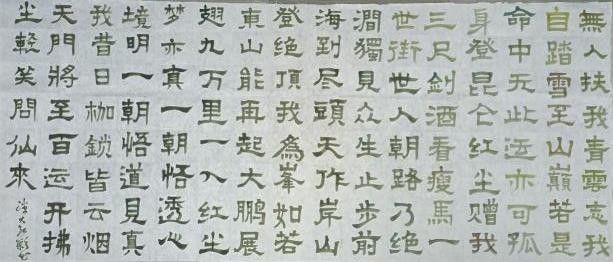 無人扶我青雲志我
自踏雪至山巔若是
命中无此运亦可孤
身登昆仑红尘赠我
三尺剑酒看瘦馬一
世街世人朝路乃绝
澗獨見众生止步前
海到尽頭天作岸山
登绝顶我為峯如若
東山能再起大鵬展
翅九万里一入红尘
梦亦真一朝悟透心
境明一朝悟道見真
我昔日枷鎖皆云烟
天門將至百运开拂
尘輕笑問仙來